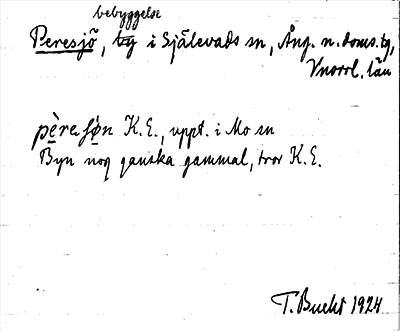 bebyggelse
Peresjö, by i Själevads sn, Ång. n. doms.,
Vnorrl. län
pèresjö́n K.E., uppt. i Mo sn
Byn nog ganska gammal, tror K.E.
T. Bucht 1924